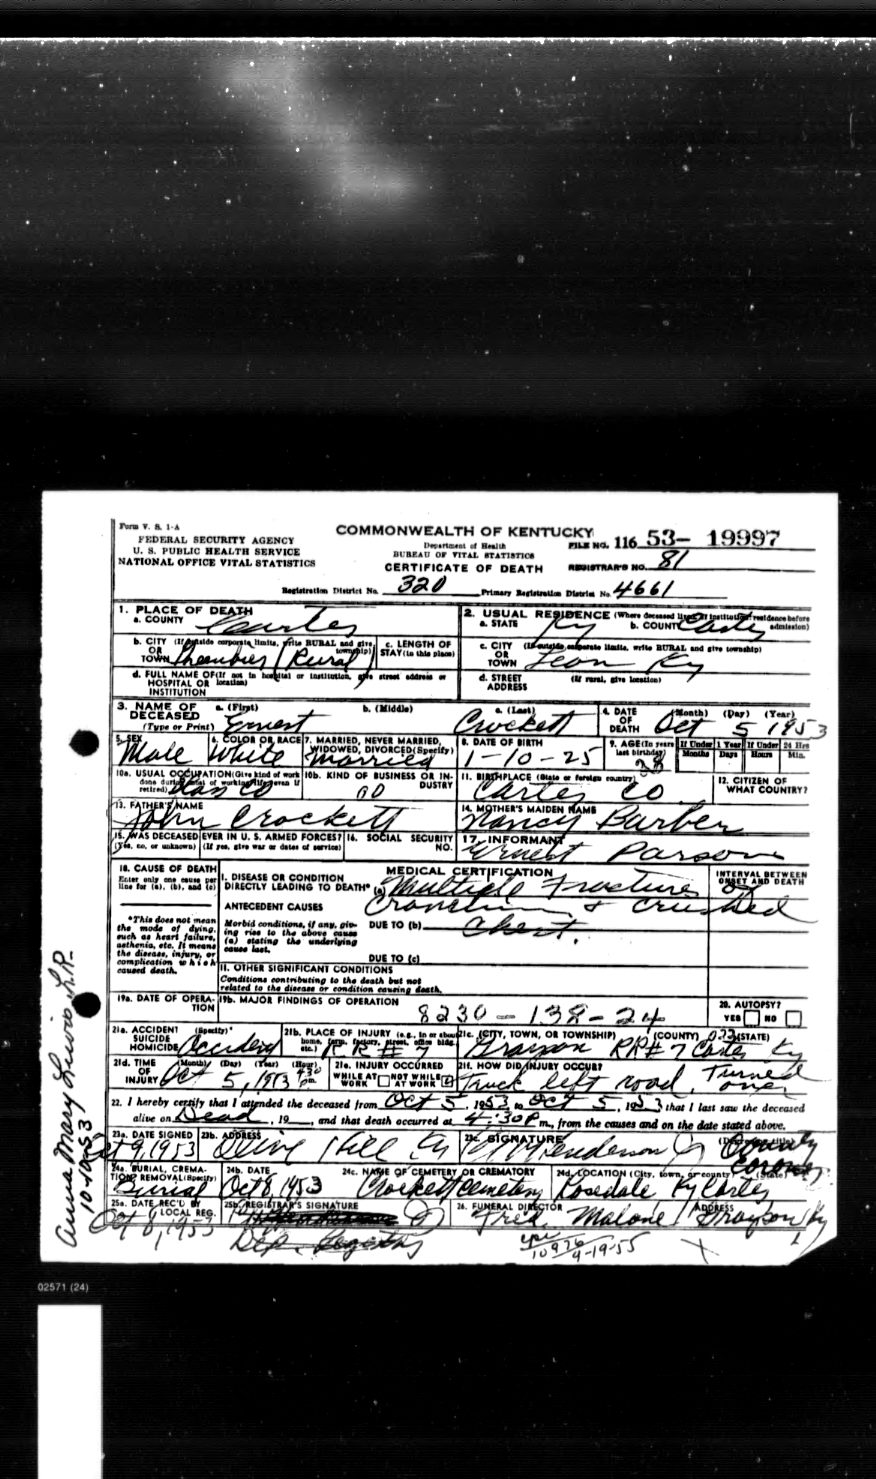 Form V. S. 1-A
FEDERAL SECURITY AGENCY
U. S. PUBLIC HEALTH SERVICE
NATIONAL OFFICE VITAL STATISTICS
COMMONWEALTH OF KENTUCKY
Department of Health
BUREAU OF VITAL STATISTICS
CERTIFICATE OF DEATH
FILE NO. 116 53- 19997
REGISTRAR'S NO. 81
Registration District No. 320 Primary Registration District No. 4661
1. PLACE OF DEATH
a. COUNTY Carter
2. USUAL RESIDENCE (Where deceased lived. If institution: residence before admission)
a. STATE Ky b. COUNTY Carter
b. CITY (If outside corporate limits, write RURAL and give township)
OR TOWN (Rural)
c. LENGTH OF STAY (in this place)
c. CITY (If outside corporate limits, write RURAL and give township)
OR TOWN Leon Ky
d. FULL NAME OF (If not in hospital or institution, give street address or location)
HOSPITAL OR INSTITUTION
d. STREET ADDRESS (If rural, give location)
3. NAME OF DECEASED (Type or Print)
a. (First) Ernest b. (Middle) c. (Last) Crockett
4. DATE OF DEATH (Month) (Day) (Year) Oct 5 1953
5. SEX Male
6. COLOR OR RACE White
7. MARRIED, NEVER MARRIED, WIDOWED, DIVORCED (Specify) Married
8. DATE OF BIRTH 1-10-25
9. AGE (In years last birthday) 28
If Under 1 Year Months Days
If Under 24 Hrs Hours Min.
10a. USUAL OCCUPATION (Give kind of work done during most of working life, even if retired)
10b. KIND OF BUSINESS OR INDUSTRY
11. BIRTHPLACE (State or foreign country) Carter Co
12. CITIZEN OF WHAT COUNTRY?
13. FATHER'S NAME John Crockett
14. MOTHER'S MAIDEN NAME Nancy Barber
15. WAS DECEASED EVER IN U. S. ARMED FORCES?
(Yes, no, or unknown) (If yes, give war or dates of service)
16. SOCIAL SECURITY NO.
17. INFORMANT Ernest Parson
18. CAUSE OF DEATH
Enter only one cause per line for (a), (b), and (c)
*This does not mean the mode of dying, such as heart failure, asthenia, etc. It means the disease, injury, or complication which caused death.
MEDICAL CERTIFICATION
INTERVAL BETWEEN ONSET AND DEATH
I. DISEASE OR CONDITION DIRECTLY LEADING TO DEATH* (a) Multiple Fracture of
ANTECEDENT CAUSES Cranium & Crushed
Morbid conditions, if any, giving rise to the above cause (a) stating the underlying cause last.
DUE TO (b) Chest.
DUE TO (c)
II. OTHER SIGNIFICANT CONDITIONS
Conditions contributing to the death but not related to the disease or condition causing death.
19a. DATE OF OPERATION
19b. MAJOR FINDINGS OF OPERATION
8230-138-24
20. AUTOPSY?
YES NO
21a. ACCIDENT SUICIDE HOMICIDE (Specify) Accident
21b. PLACE OF INJURY (e.g., in or about home, farm, factory, street, office bldg., etc.) RR # 7
21c. (CITY, TOWN, OR TOWNSHIP) (COUNTY) (STATE)
Grayson RR# 7 Carter Ky
21d. TIME OF INJURY (Month) (Day) (Year) (Hour) Oct 5, 1953 4:30 pm.
21e. INJURY OCCURRED
WHILE AT WORK NOT WHILE AT WORK
21f. HOW DID INJURY OCCUR?
Truck left road, Turned over
22. I hereby certify that I attended the deceased from Oct 5, 1953 to Oct 5, 1953 that I last saw the deceased
alive on Dead, 19__, and that death occurred at 4:30 P m., from the causes and on the date stated above.
23a. DATE SIGNED Oct 9, 1953
23b. ADDRESS Olive Hill Ky
23c. SIGNATURE Henderson Jr County Coroner
24a. BURIAL, CREMATION, REMOVAL (Specify) Burial
24b. DATE Oct 8, 1953
24c. NAME OF CEMETERY OR CREMATORY Crockett Cemetery
24d. LOCATION (City, town, or county) (State) Rosedale Ky Carter
25a. DATE REC'D BY LOCAL REG. Oct 8, 1953
25b. REGISTRAR'S SIGNATURE
Dep. Registrar
26. FUNERAL DIRECTOR ADDRESS
Fred Malone Grayson Ky
10976
9-19-55
Anna Mary Lewis, L.R.
10-10-53
02571 (24)